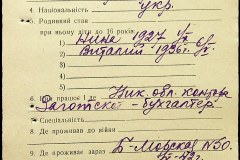 4. Національність укр.
5. Родинний стан
при ньому діти до 16 років
1) Нина 1927
2) Виталий 1936 г.
3)
4)
5)
6. Ник. обл. контора
"Заготскот" - бухгалтер.
7. Спеціяльність
8. Де проживав до війни
9. Де проживає зараз Б-Морская №50.